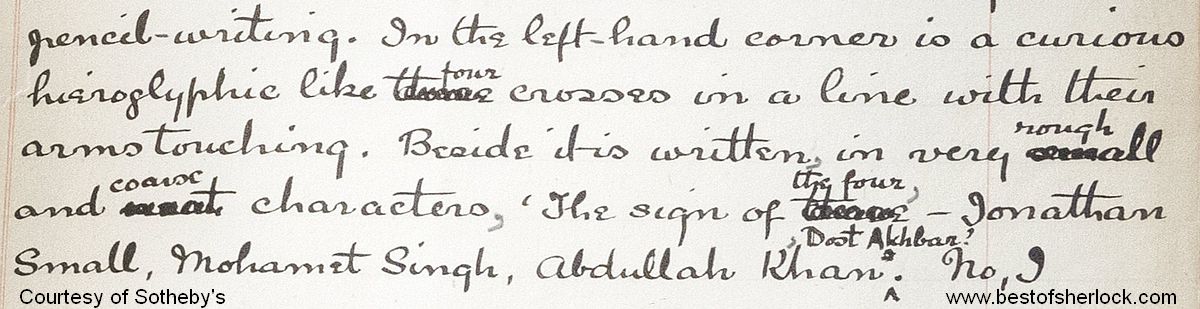 pencil-writing. In the left-hand corner is a curious
four
hieroglyphic like three crosses in a line with their
rough
arms touching. Beside it is written, in very small
coarse
the four,
and neat characters, 'The sign of three – Jonathan
, Dost Akhbar.'
Small, Mohamet Singh, Abdullah Khan'. No, I
Courtesy of Sotheby's
www.bestofsherlock.com